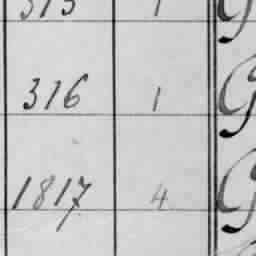 315 1 G
316 1 G
1817 4 G